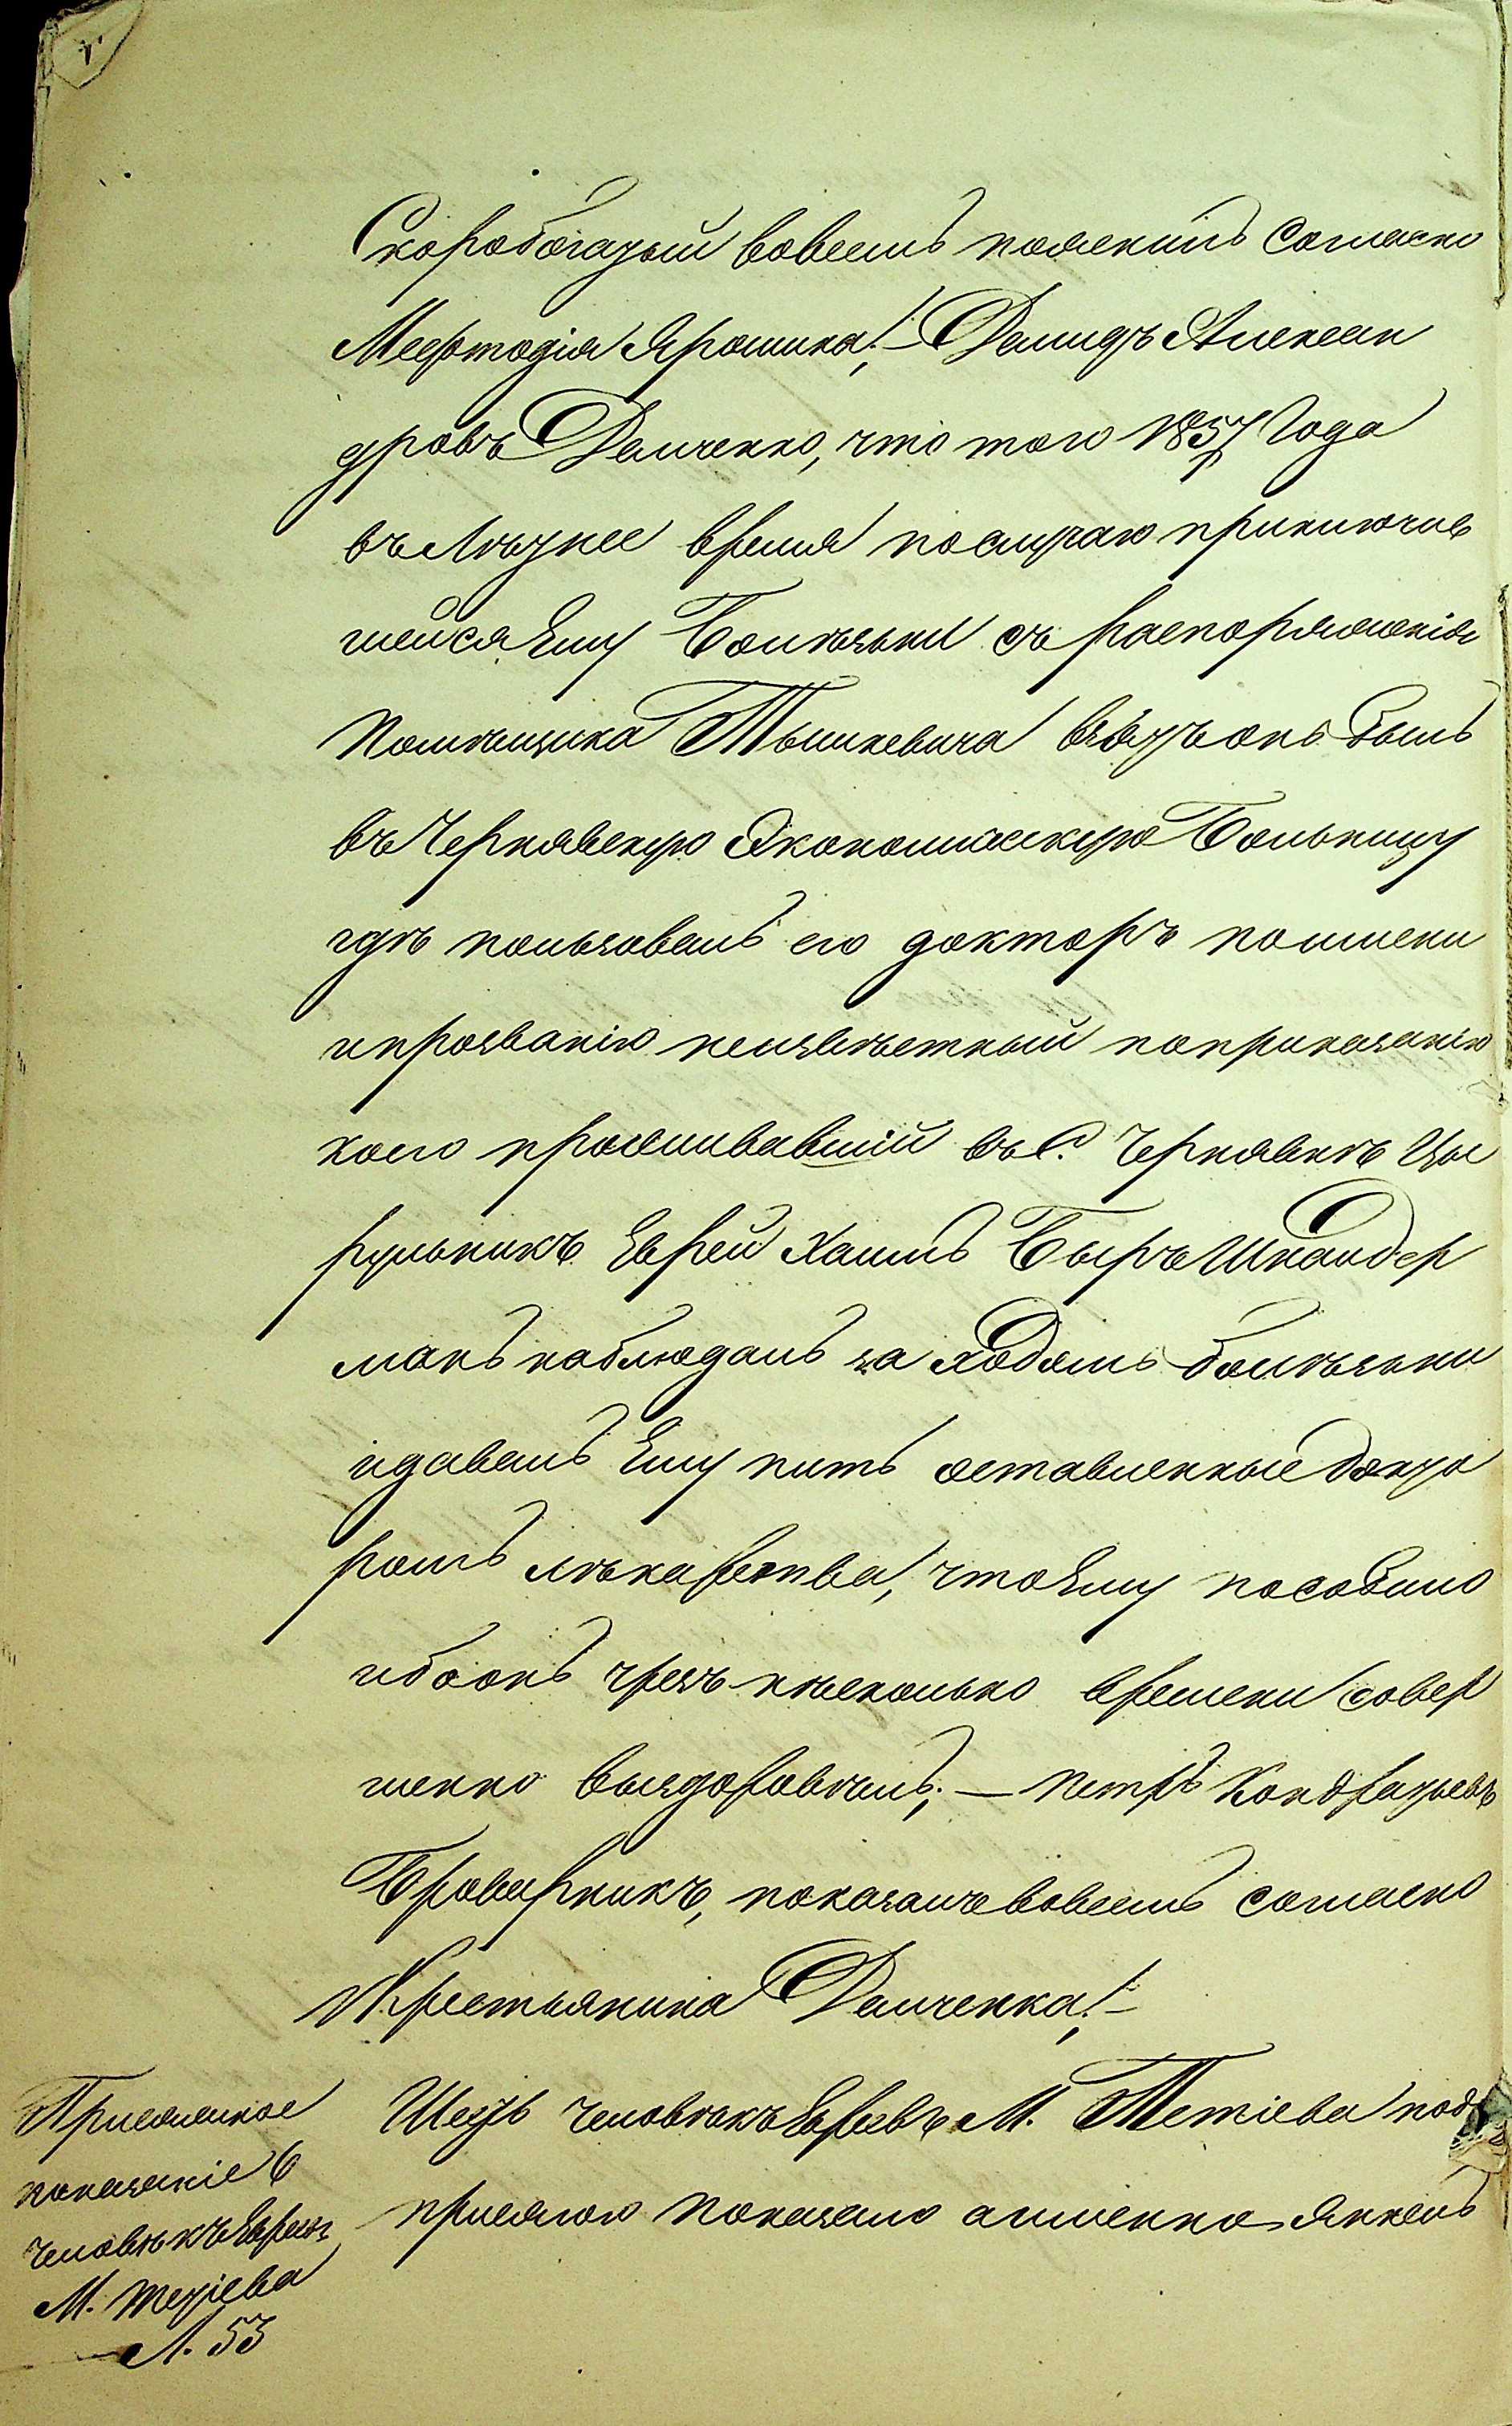 Скоробогатый вовсемъ показалъ согласно
Мефтодія Ярошика!- Демидъ Алексан
дровъ Демченко, что того 1857 Года
въ Лѣтнее время по случаю приключив
шейся Ему Болѣзьни съ распоряженія
Помѣщика Тышкевича взятъ онъ былъ
въ Чернявскую Экономическую Больницу
гдѣ пользовалъ его докторъ по имени
и прозванію неизвѣстный по приказанію
коего проживавшій въ С. Чернявкѣ Цы
рульникъ Еврей Хаимъ Беръ Шнайдер
манъ наблюдалъ за ходомъ болѣзьни
и давалъ Ему пить оставленные докто
ромъ лѣкарства, что Ему пособило
ибо онъ чрезъ нѣсколько времени совер
шенно выздоровѣлъ; — Петръ Кондратьевъ
Броварникъ, показалъ вовсемъ согласно
Крестьянина Демченка!-
Шесть человѣкъ Евреевъ М. Тетіева подъ
присягою показали а именно Янкель
Присяжное
показаніе 6
человѣкъ Евреевъ
М. Тетіева
Л. 53